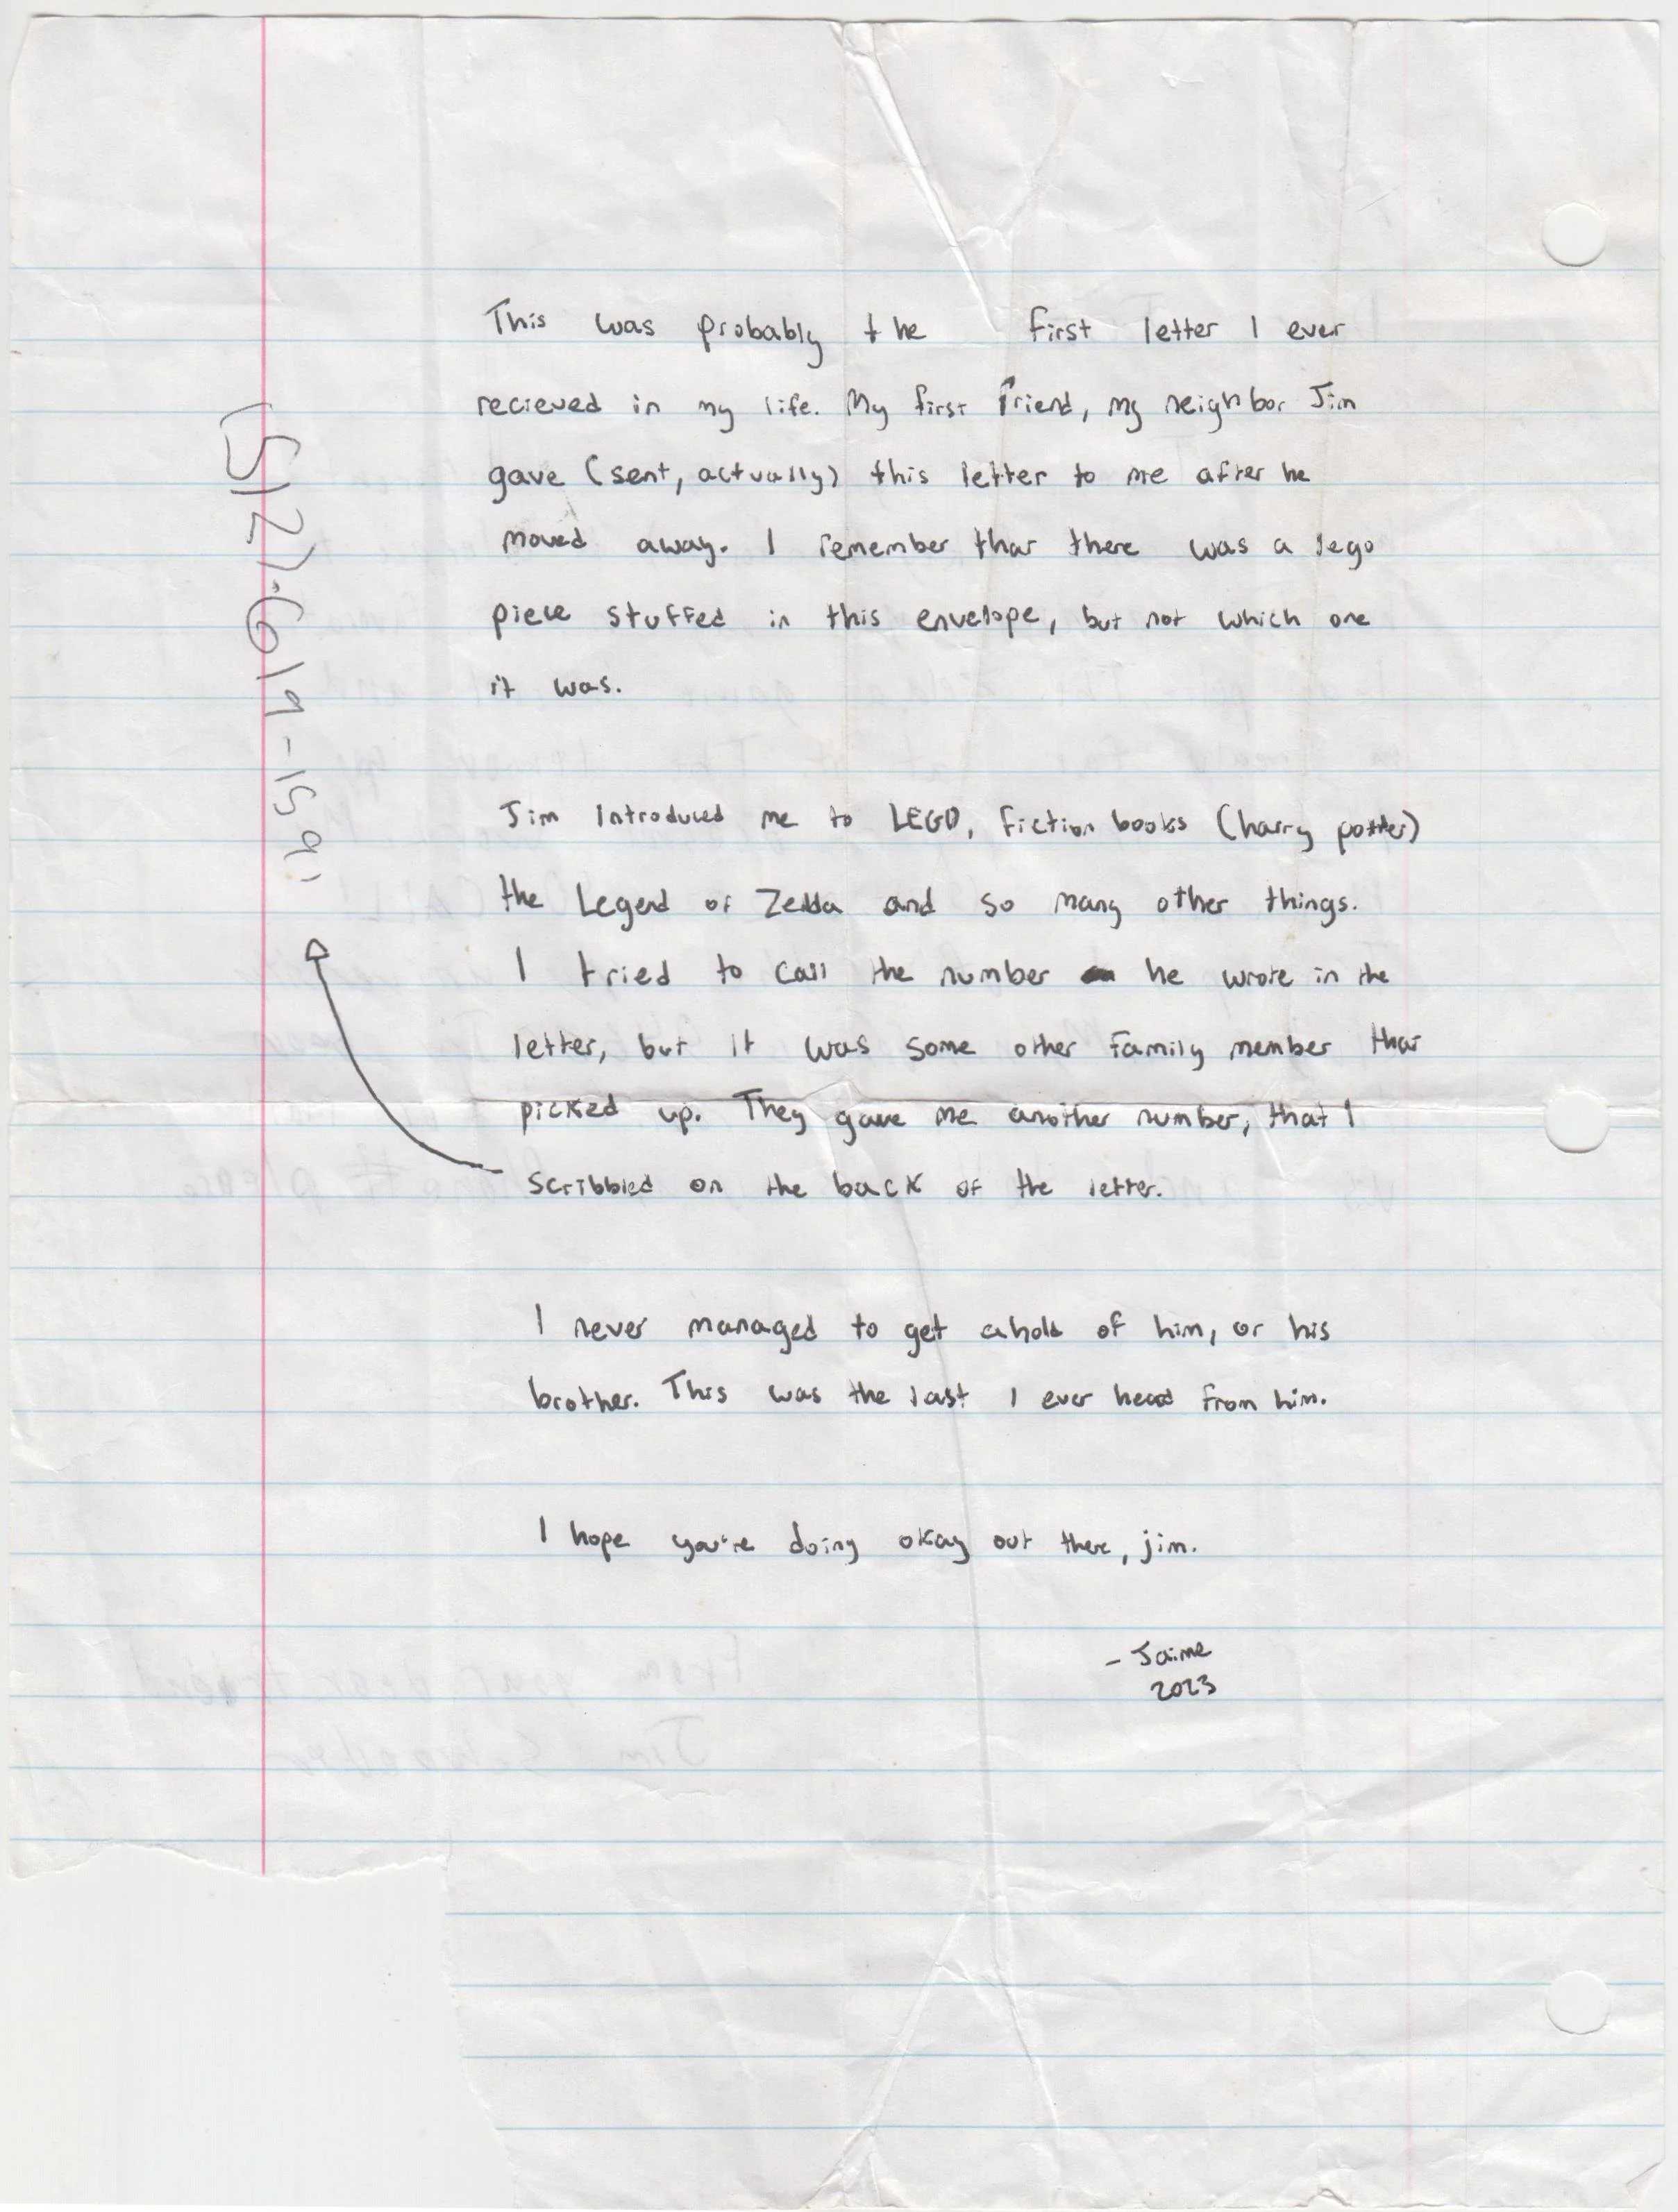 This was probably the first letter I ever
recieved in my life. My first friend, my neighbor Jim
gave (sent, actually) this letter to me after he
moved away. I remember that there was a lego
piece stuffed in this envelope, but not which one
it was.
(512)-619-1591
Jim Introduced me to LEGO, fiction books (harry potter)
the Legend of Zelda and so many other things.
I tried to call the number he wrote in the
letter, but it was some other family member that
picked up. They gave me another number, that I
scribbled on the back of the letter.
I never managed to get ahold of him, or his
brother. This was the last I ever heard from him.
I hope you're doing okay out there, jim.
- Jaime
2023
From your dear friend
Jim